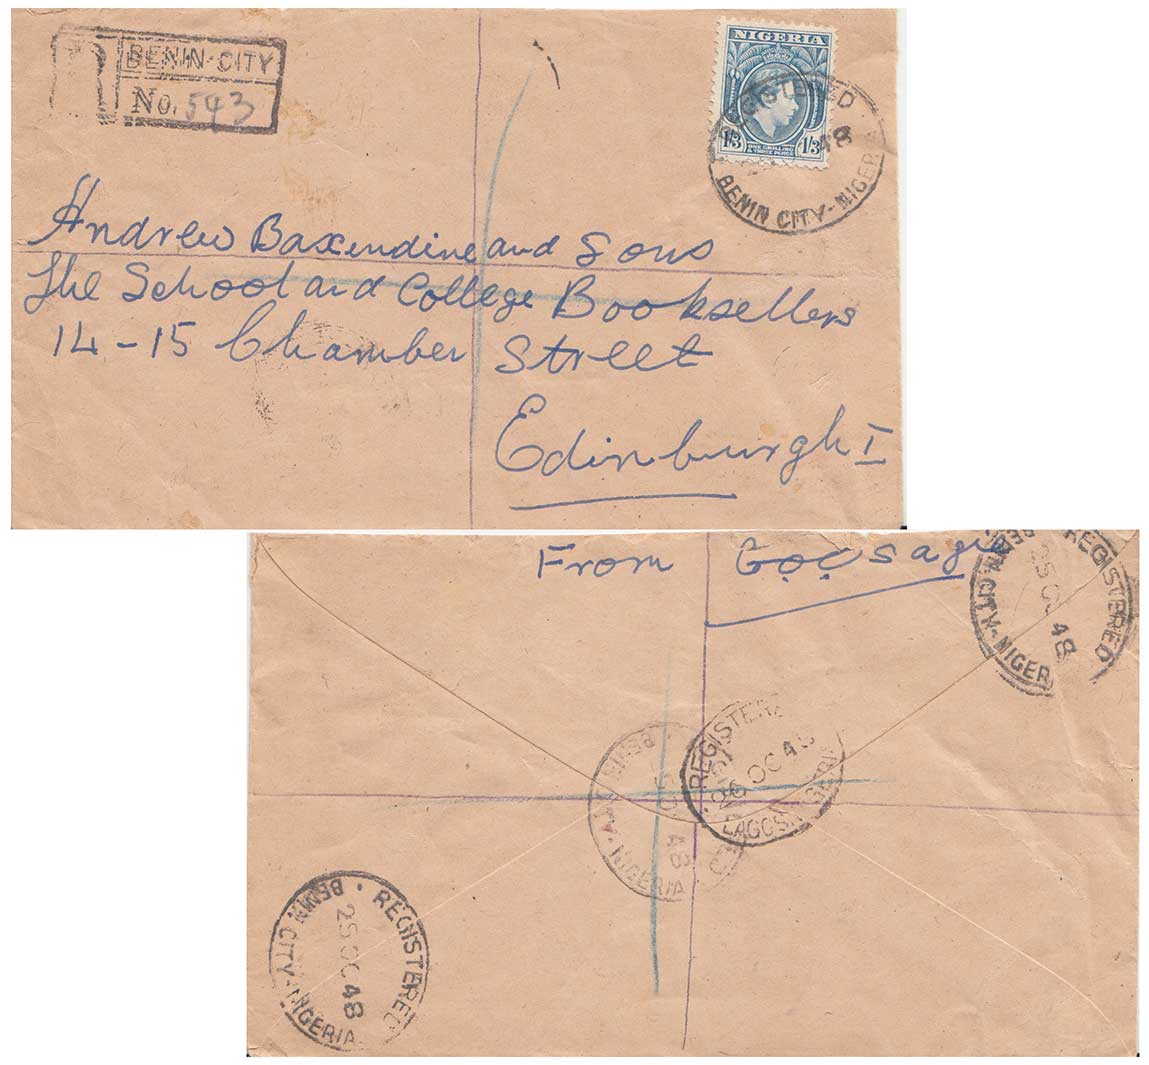 BENIN-CITY
No. 543
NIGERIA
1/3 ONE SHILLING & THREE PENCE 1/3
REGISTERED
48
BENIN CITY-NIGERIA
Andrew Baxendine and Sons
The School and College Booksellers
14-15 Chamber Street
Edinburgh I
From
REGISTERED
25 OC 48
BENIN CITY-NIGERIA
REGISTERED
26 OC 48
LAGOS
BENIN CITY-NIGERIA
48
REGISTERED
25 OC 48
BENIN CITY-NIGERIA